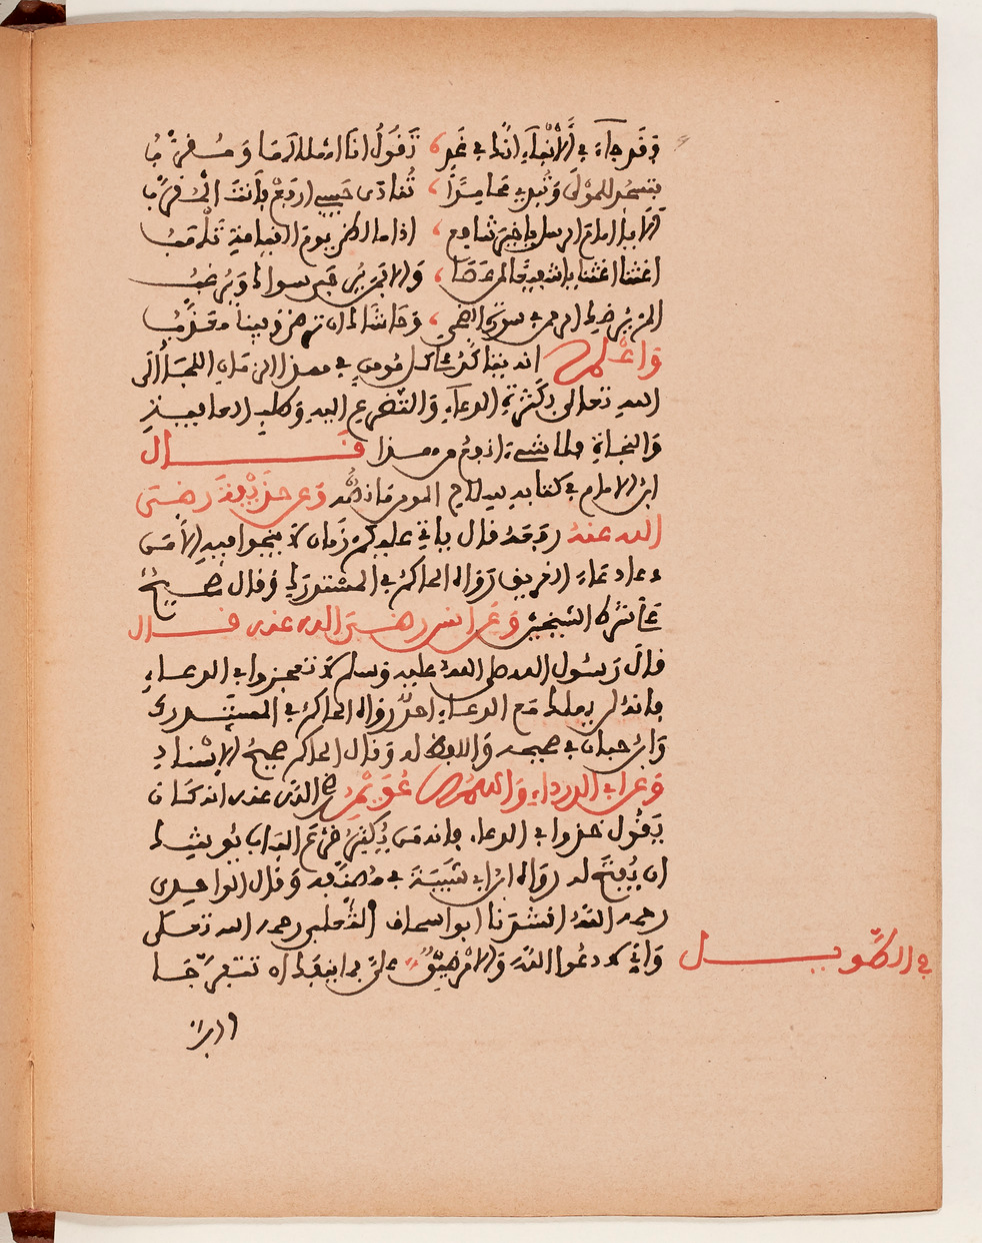 وقد جاء في الأنباء انك في غد ، تقول انا امتلك امها و
بتسجد للمولى و ، تنادى حبيبي ارفع فأنت
ألا يا امام الرسل يا خير شافع ، اذا ما لظى يوم القيامة تلهب
اغثنا اغثنا يا شفيعا لمن عصا ، والا فمن نرجو سواك ونرغب
الم يرضيك الرحمن في سورة الضحى ، وحاشاك ان ترضى وفينا معذب
واعلم انه يتأكد على كل مومن في هذا الزمان اللجأ الى
الله تعالى بكثرة الدعاء والتضرع اليه وطلب العافية
والنجاة فلا شيء انفع من هذا قال
ابن الامام في كتابه سلاح المومن ما نصه وعن حذيفة رضى
الله عنه رفعه قال ياتي عليكم زمان لا ينجوا فيه الا من
دعا دعاء الغريق رواه الحاكم في المستدرك وقال صحيح
على شرط الشيخين وعن انس رضى الله عنه قال
قال رسول الله صلى الله عليه وسلم لا تعجزوا في الدعاء
فانه لن يهلك مع الدعاء احد رواه الحاكم في المستدرك
وابن حبان في صحيحه واللفظ له وقال الحاكم صحيح الإسناد
وعن ابي الدرداء واسمه عويمر رضي الله عنه انه كان
يقول جدوا في الدعاء فانه من يكثر قرع الباب يوشك
ان يفتح له رواه ابن ابي شيبة في مصنفه وقال الواحدي
رحمه الله انشدنا ابو اسحاق الثعلبي رحمه الله تعلى
في الطويل
واني لادعوا الله والامر ضيق علي فما ينفك ان تتفرجا